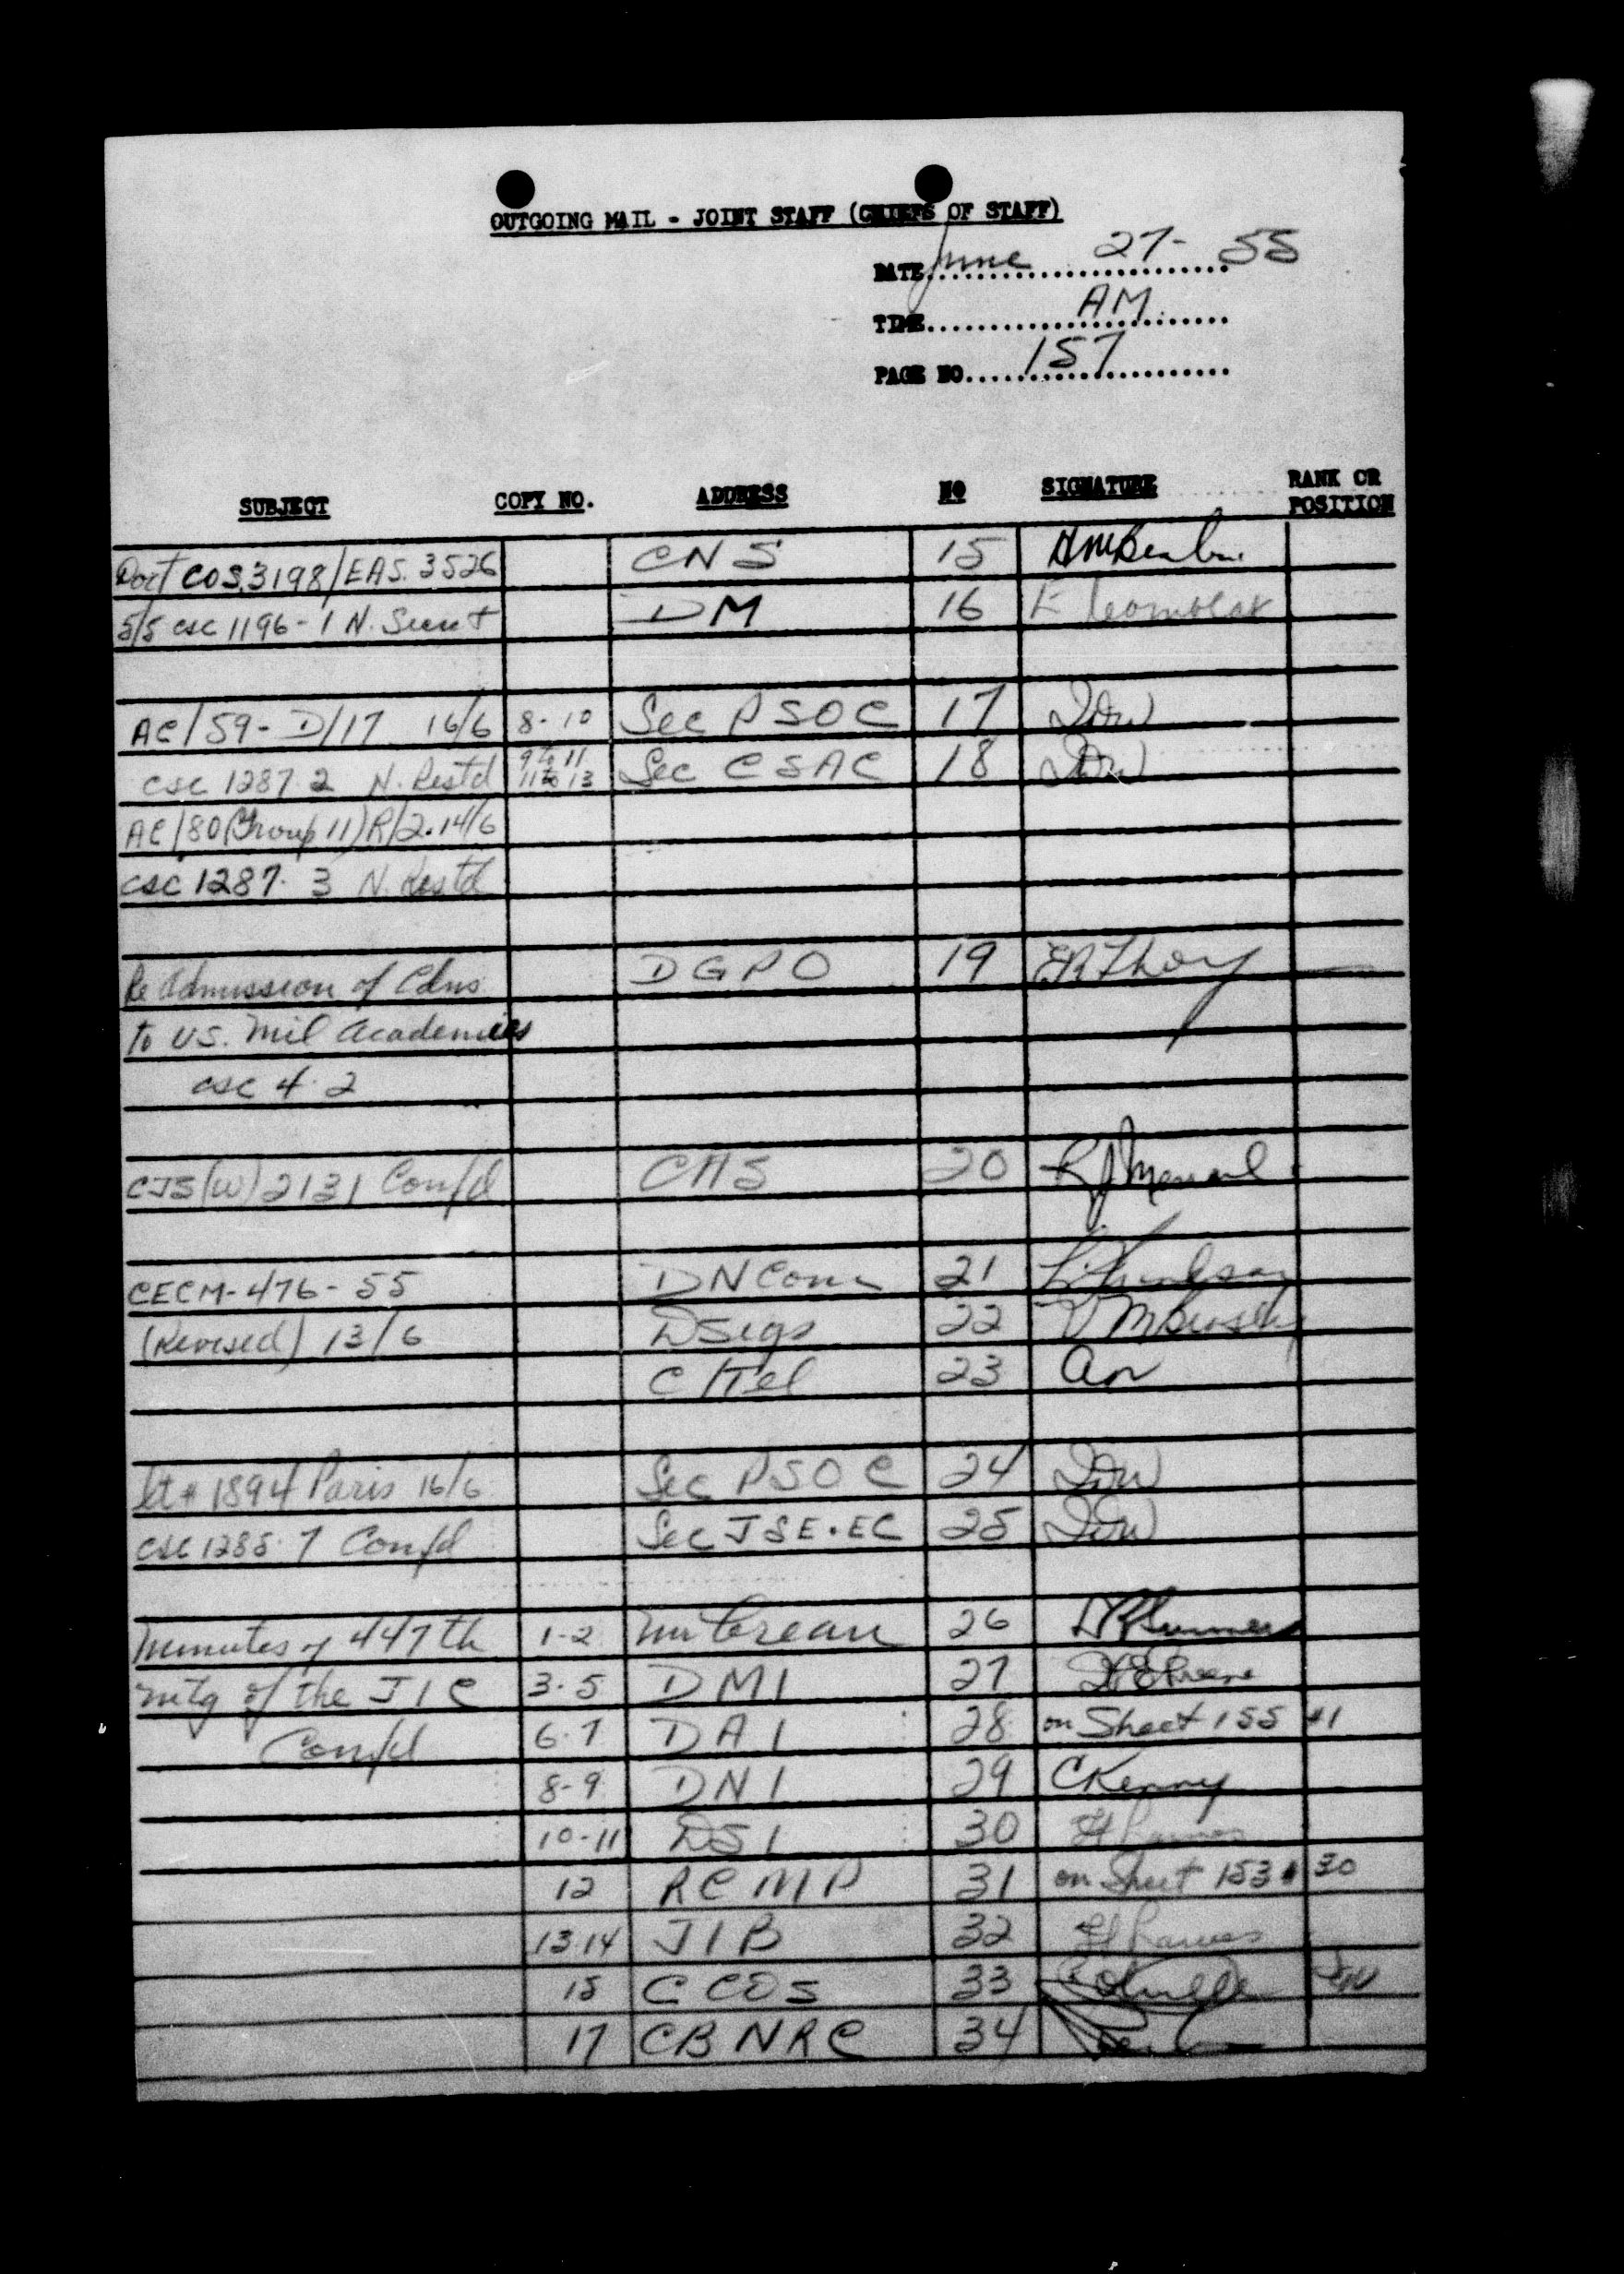 OUTGOING MAIL - JOINT STAFF (CHIEFS OF STAFF)
DATE June 27- 55
TIME AM
PAGE NO. 157
SUBJECT COPY NO. ADDRESS NO SIGNATURE RANK OR POSITION
COS.3198/EAS.3526 CNS 15
5/5 csc 1196-1 N. Secret DM 16
AC/59-D/17 16/6 8-10 Sec PSOC 17
csc 1287.2 N. Restd 9 to 11 11 to 13 Sec CSAC 18
AC/80 (Group 11) R/2. 14/6
csc 1287. 3 N. Restd
Re Admission of Cdns DGPO 19
to US. Mil Academies
csc 4.2
CJS(W) 2131 Conf'd CAS 20
CECM-476-55 DNCom 21
(Revised) 13/6 DSigs 22
C/Tel 23
let # 1894 Paris 16/6 Sec PSOC 24
csc 1285.7 Conf'd Sec JSE.EC 25
Minutes of 447th 1-2 Mr Crean 26
mtg of the JIC 3-5 DMI 27
Conf'd 6-7 DAI 28 on Sheet 155 #1
8-9 DNI 29 CKenny
10-11 DSI 30
12 RCMP 31 on Sheet 153 # 30
13.14 JIB 32
15 CCOS 33
17 CBNRC 34